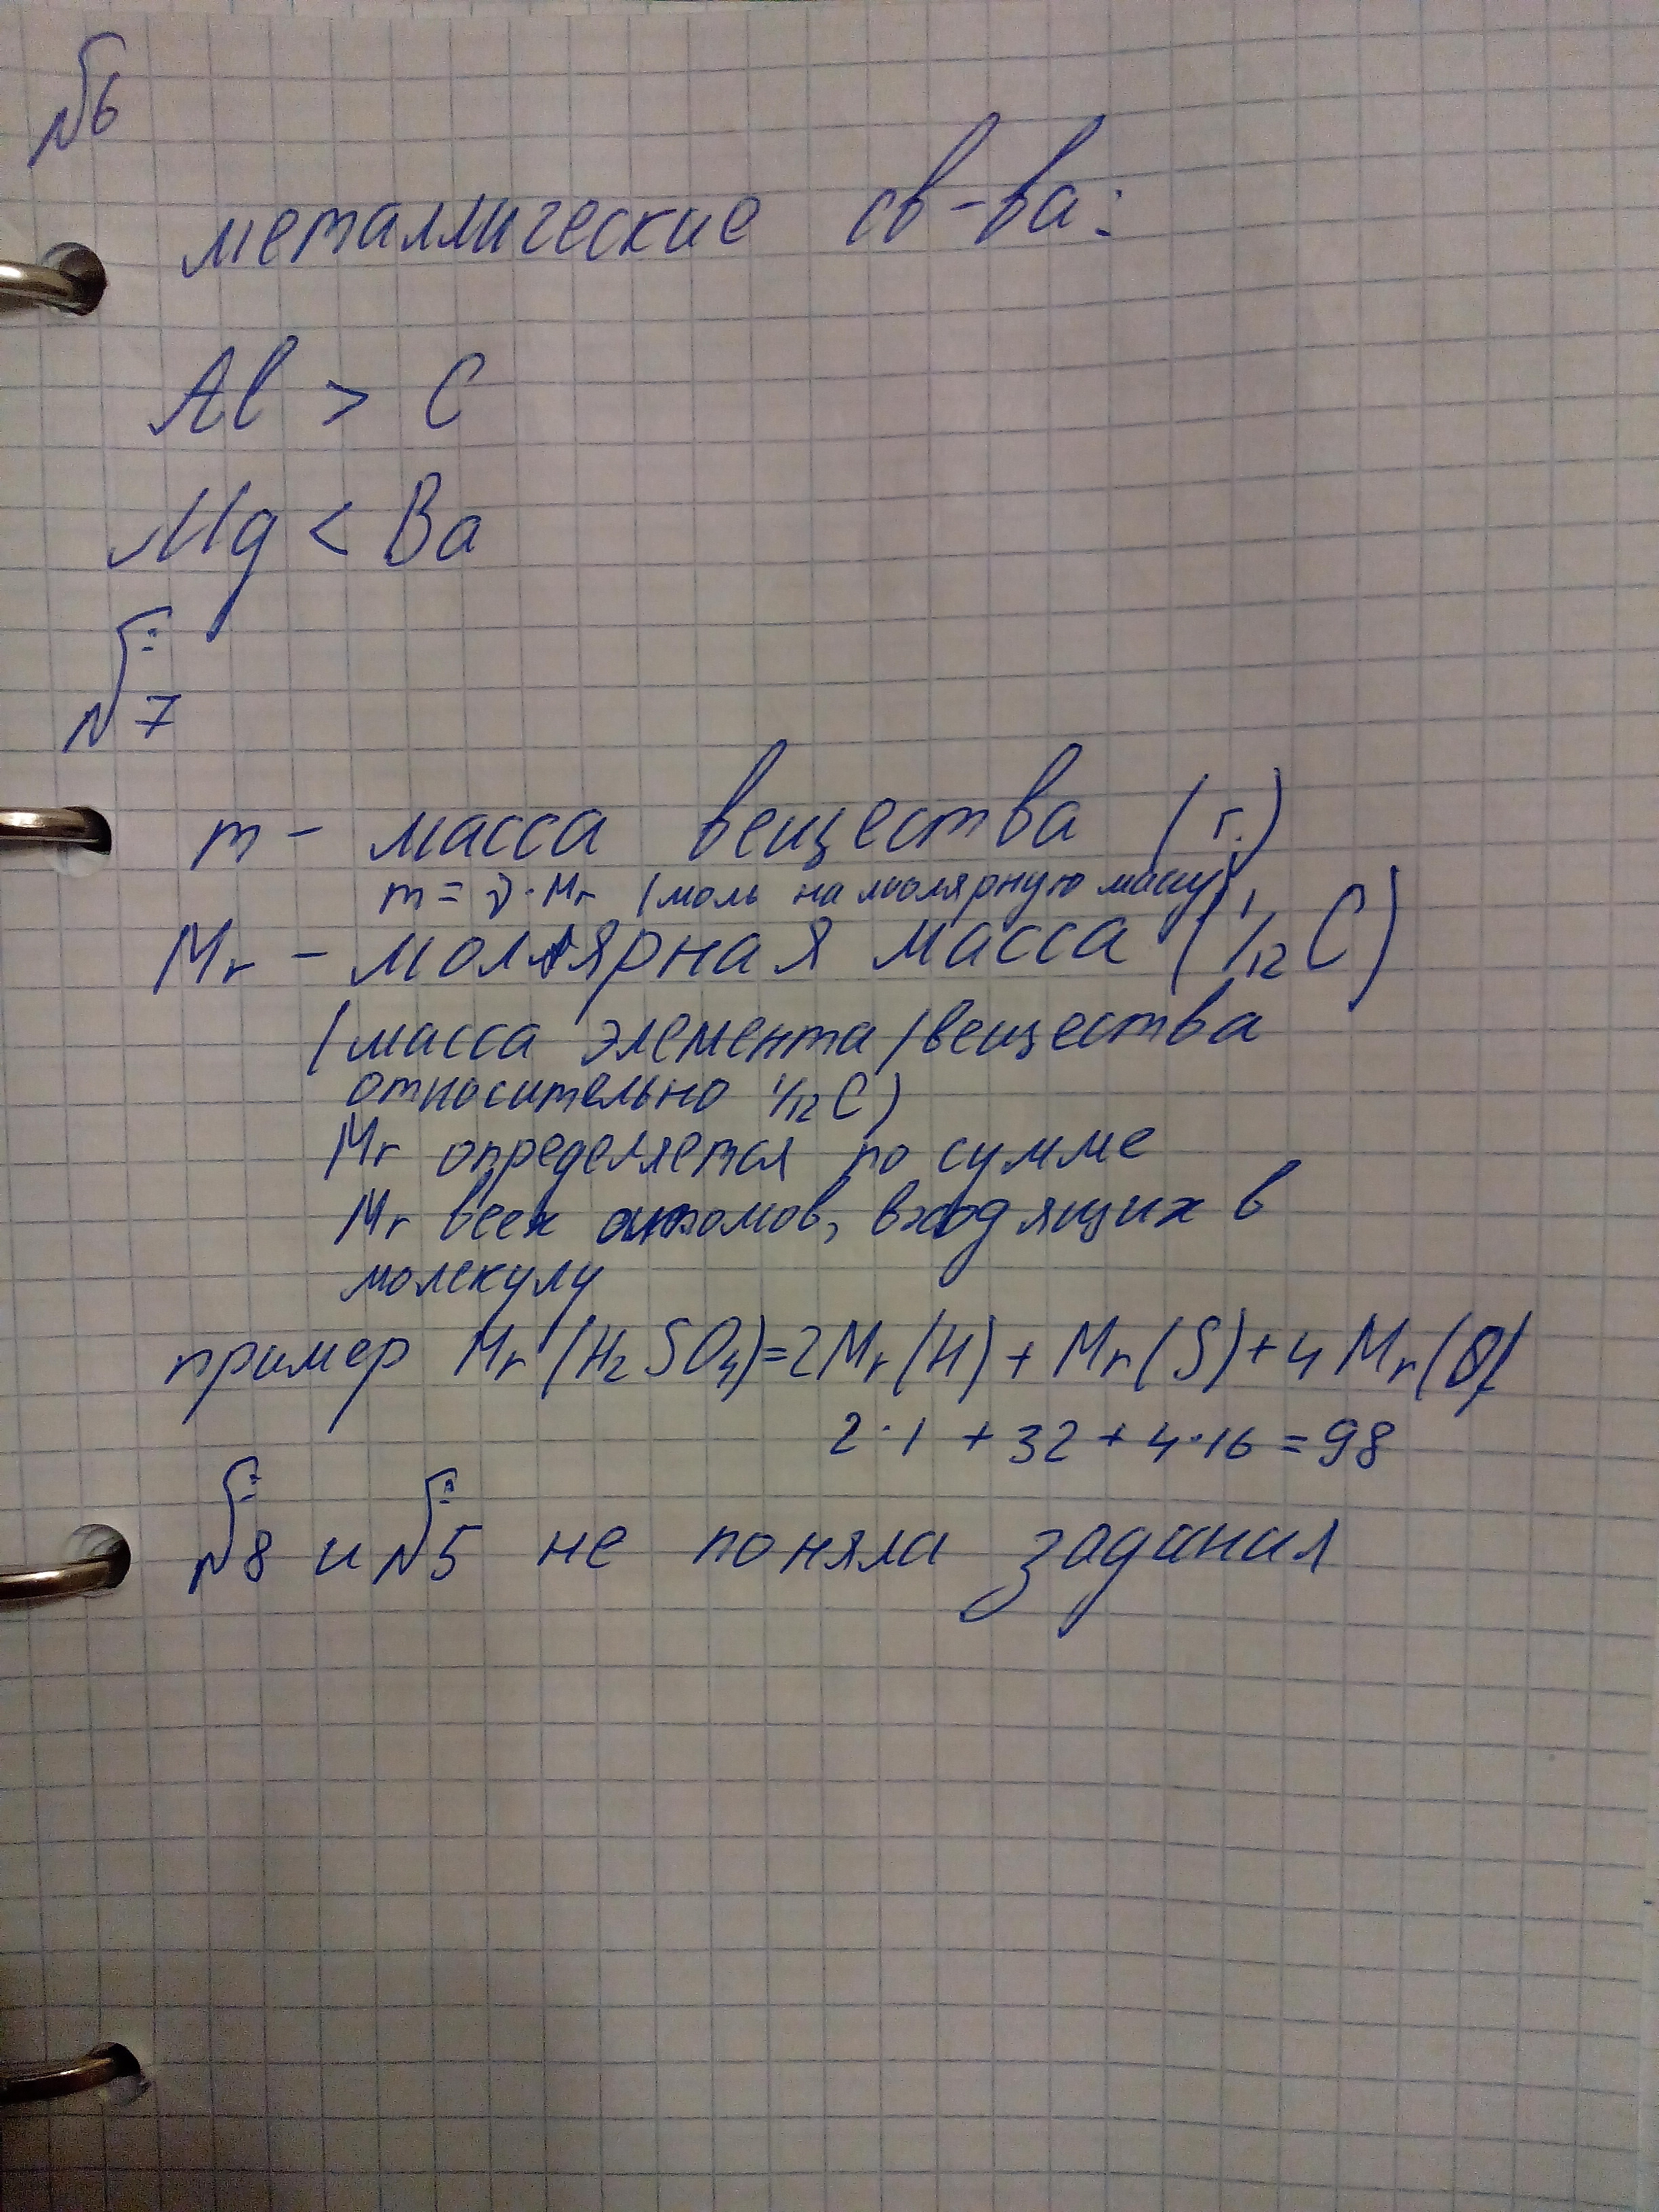 №6
металлические св-ва:
Al > C
Mg < Ba
№7
m - масса вещества (г.)
m = ν · Mr (моль на молярную массу)
Mr - молярная масса (1/12 C)
(масса элемента/вещества
относительно 1/12 C)
Mr определяется по сумме
Mr всех атомов, входящих в
молекулу
пример Mr (H₂SO₄)=2Mr(H) + Mr(S)+4Mr(O)
2·1 + 32 + 4·16 = 98
№8 и №5 не поняла задания